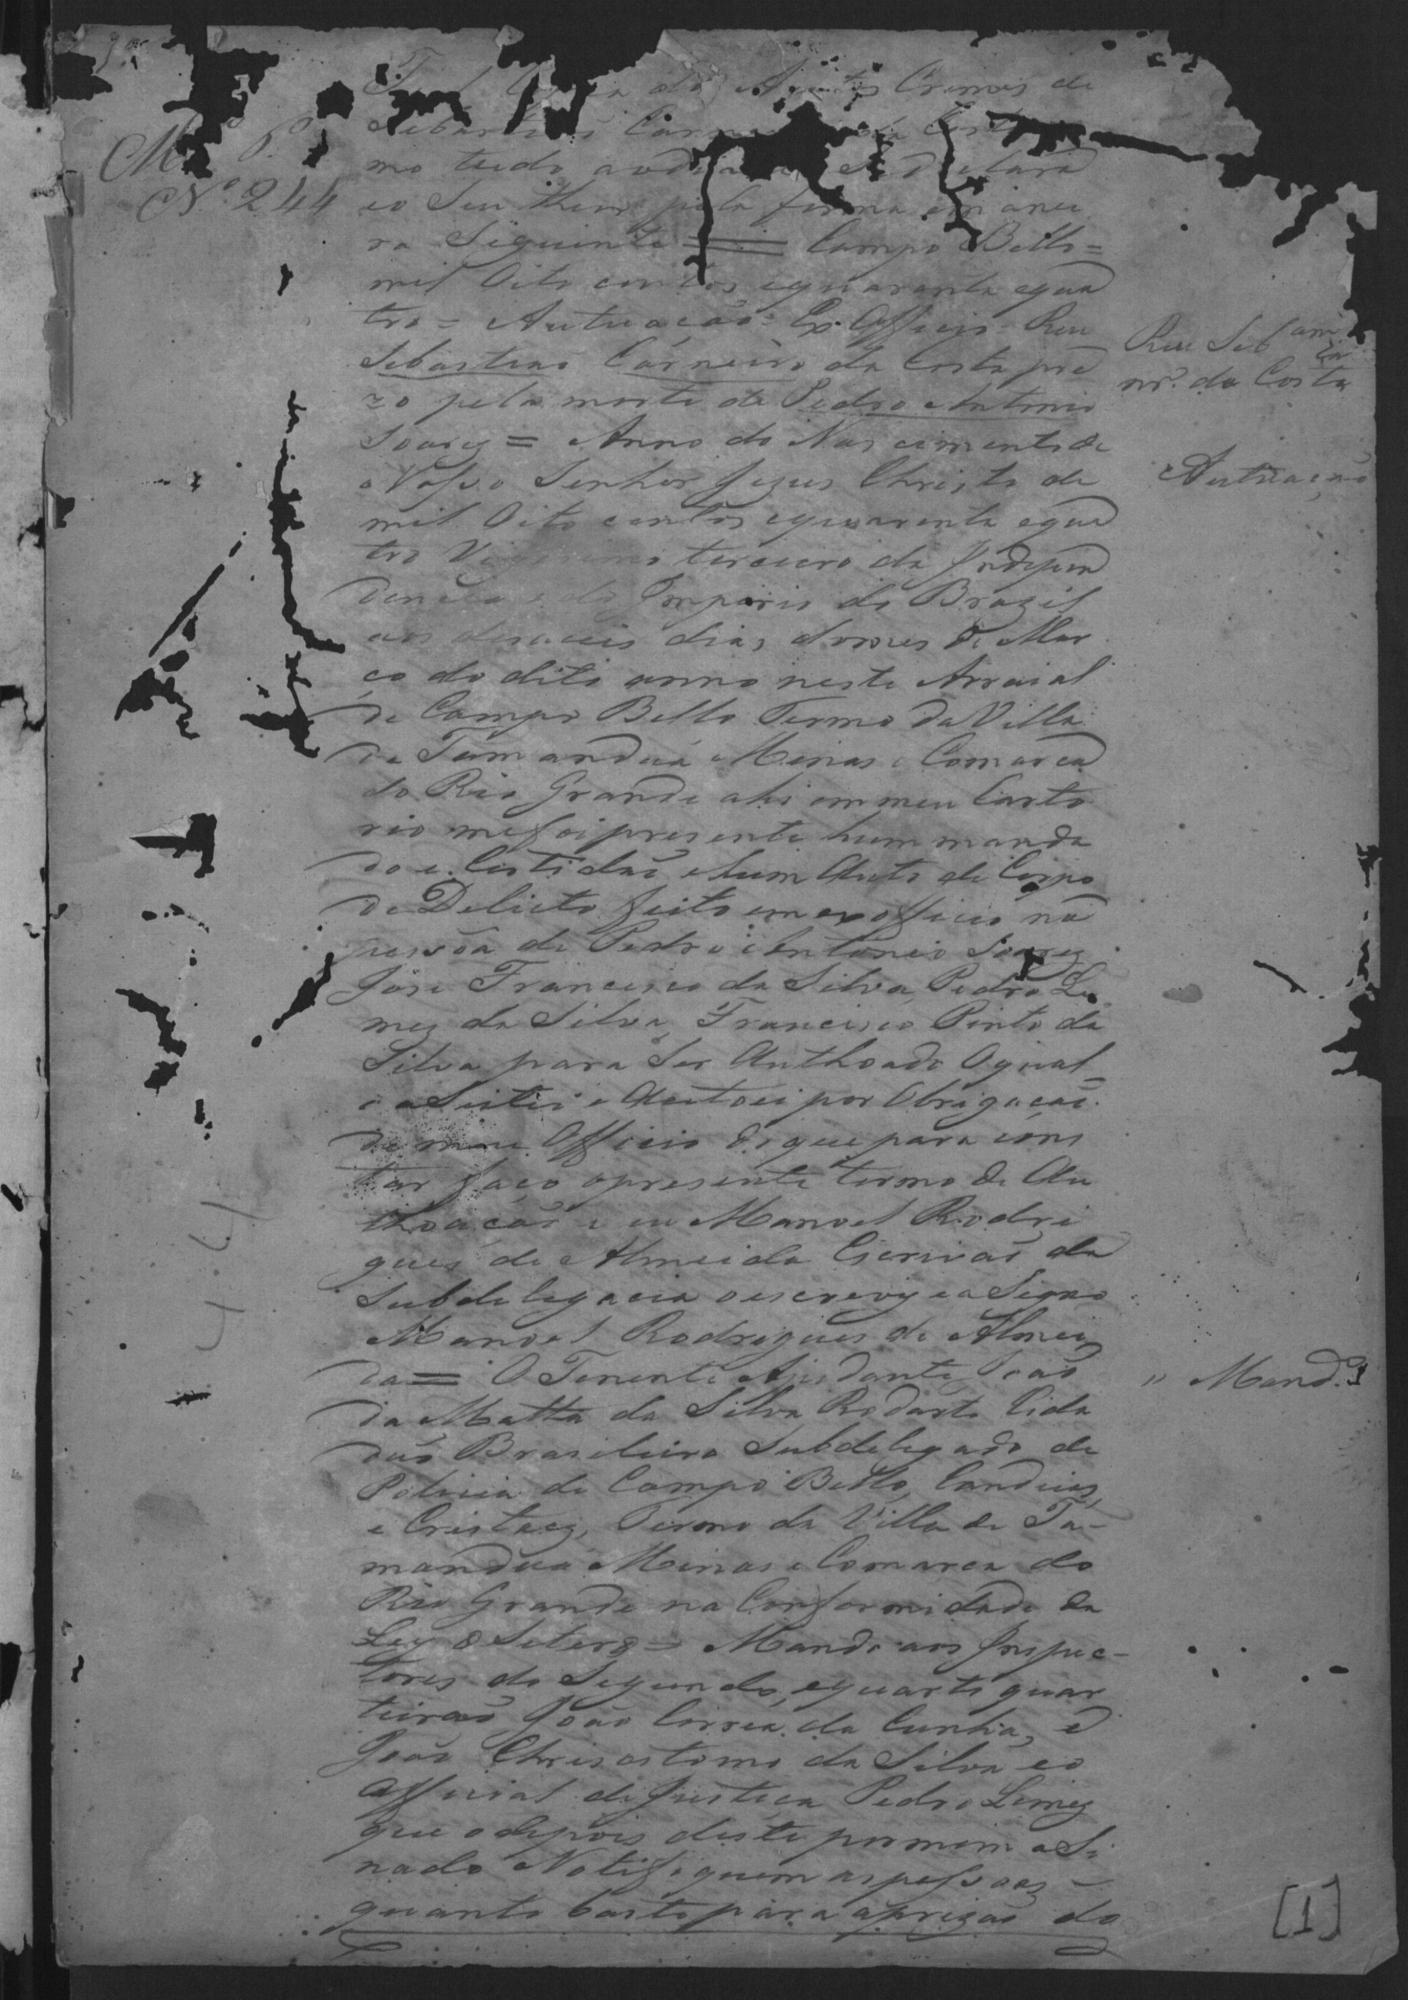 M.ço P.
N.º 244
dos Autos Crimes de
Sebastiaõ da Costa
mo tudo
eo Seu theor pela forma emanei
ra Siguinte = Campo Bello =
mil Oito centos equarenta equa
tro = Autuação = Ex Officio = Reu
Sebastiaõ Carneiro da Costa pre
zo pela morte de Pedro Antonio
Soarez = Anno do Nascimento de
Nosso Senhor Jezus Christo de
mil Oito centos equarenta equa
tro Vigesimo terceiro da Indepen
dencia e do Imperio do Brazil
aos deseceis dias domes de Mar
ço do dito anno neste Arraial
de Campo Bello Termo da Villa
de Tamanduá Minas e Comarca
do Rio Grande ahi em meu Carto
rio mefoi presente hum manda
do e Certidaõ, e hum Auto de Corpo
de Delicto feito em ex officio na
pessôa de Pedro Antonio Soarez
José Francisco da Silva, Pedro Le
mez da Silva, Francisco Pinto da
Silva para Ser Authoado Oqual
aSeitei e Autoei por Obrigaçaõ
de meu Officio do que para cons
tar faço opresente termo de Au
thoaçaõ e eu Manoel Rodri
gues de Almeida Escrivaõ da
Subdelegacia oescrevy eaSigno
Manoel Rodrigues de Almei
da = O Tenente Ajudante Joaõ
da Matta da Silva Rodarte Cida
daõ Brasileiro Subdelegado de
Policia de Campo Bello, Candeias,
e Cristaez, Termo da Villa de Ta-
manduá Minas e Comarca do
Rio Grande na Conformidade da
Ley & Setera = Mando aos Inspec-
tores do Segundo, equarto quar
teiraõ João Correa da Cunha, e
Joaõ Chrisostomo da Silva eo
Official de Justiça Pedro Lemez
que odepois deste por mim aSi
nado Notifiquem as pessoas
quanto baste para aprizaõ do
Reu Seb.am Car
nr.º da Costa
Autuação
" Mand.º
[1]